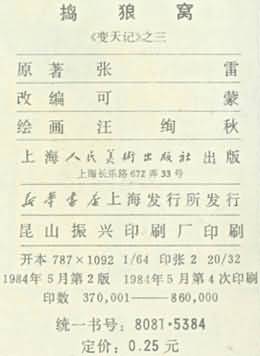 捣狼窝
《变天记》之三
原著 张雷
改编 可蒙
绘画 汪绚秋
上海人民美術出版社 出版
上海长乐路672弄33号
新华書店上海发行所发行
昆山振兴印刷厂印刷
开本 787×1092 1/64 印张 2 20/32
1984年5月第2版 1984年5月第4次印刷
印数 370,001——860,000
统一书号：8081·5384
定价：0.25元